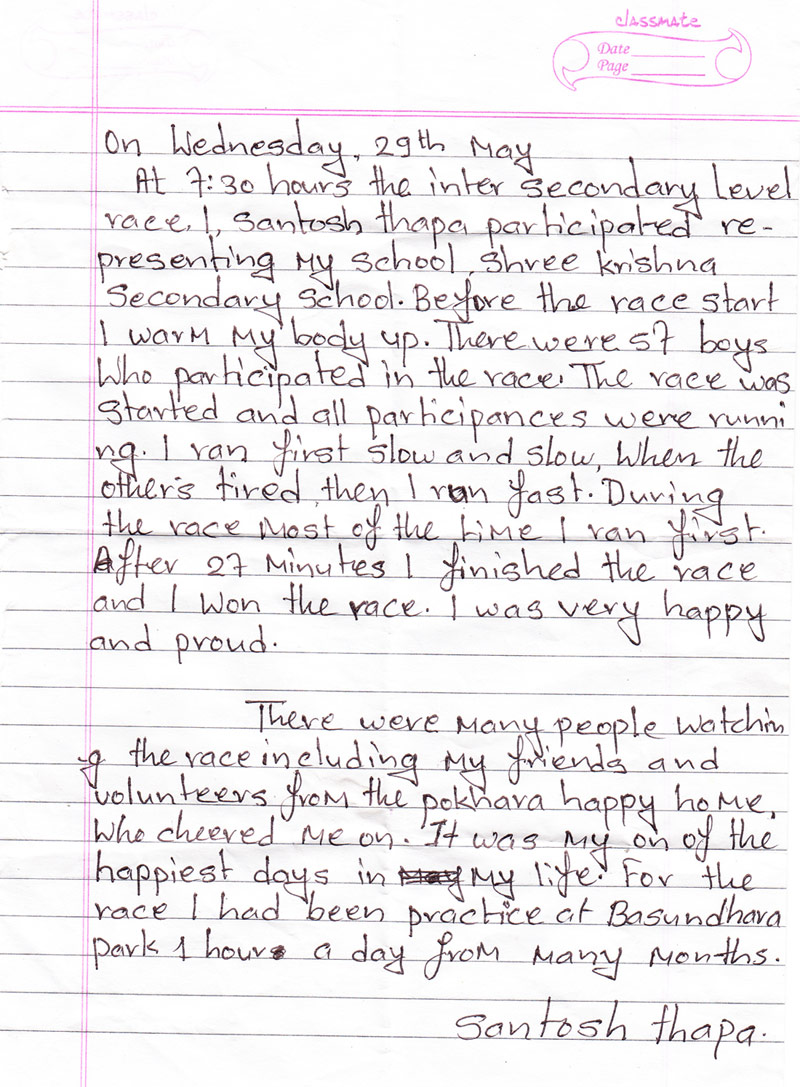 classmate
Date
Page
On Wednesday, 29th May
At 7:30 hours the inter secondary level
race. I, Santosh thapa participated re-
presenting My school, shree krishna
Secondary school. Before the race start
I warm My body up. There were 57 boys
Who participated in the race. The race was
started and all participances were runni
ng. I ran first slow and slow, When the
other's tired, then I run fast. During
the race Most of the time I ran first.
After 27 Minutes I finished the race
and I Won the race. I was very happy
and proud.
There were Many people watchin
-g the race including My friends and
volunteers from the pokhara happy home,
Who cheered Me on. It was My on of the
happiest days in My life. For the
race I had been practice at Basundhara
park 1 hour a day from Many Months.
Santosh thapa.